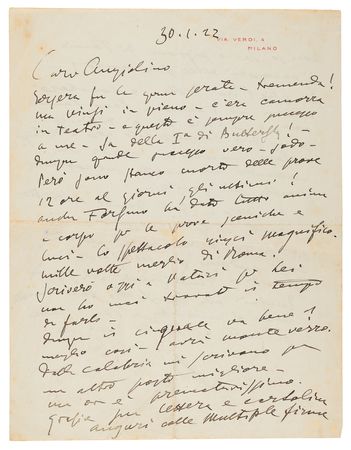 30.1.22
VIA VERDI, 4
MILANO
Caro Angiolino
Iersera fu la gran serata - tremenda!
ma vinsi in pieno - c'era camorra
in teatro - e questo è sempre successo
a me - sa della Ia di Butterfly! -
dunque grande successo vero - sodo -
Però sono stanco morto delle prove
12 ore al giorno gli ultimi!
anche Forzano ha dato tutto anima
e corpo per le prove sceniche e
luci - Lo spettacolo riuscì magnifico.
mille volte meglio di Roma!
Scriverò oggi a per lei
non ho mai trovato il tempo
di farlo -
dunque il cinquale va bene!
meglio così - avrà monte verze.
Dalla calabria mi scrivono per
un altro posto migliore -
ma ora è prematurissimo.
grazie per lettera e cartolina
auguri colle multiple firme